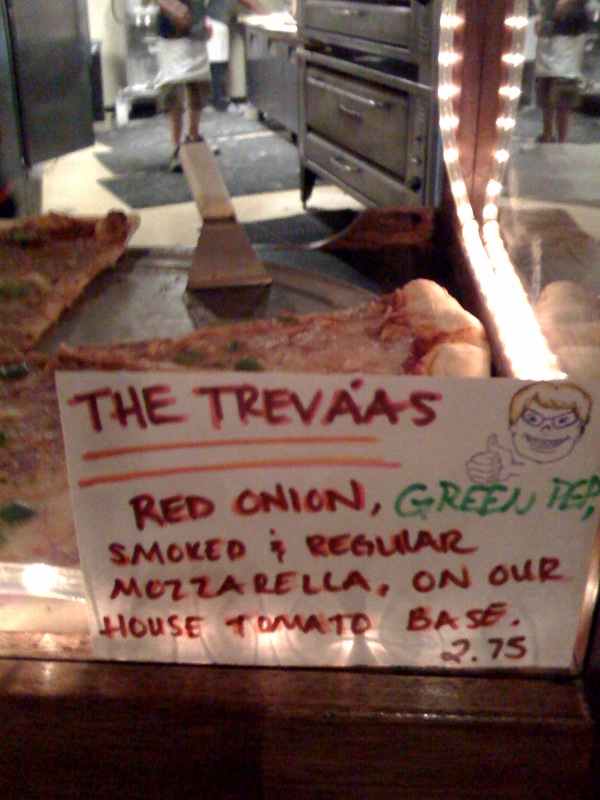 THE TREVÁAS
RED ONION, GREEN PEP,
SMOKED & REGULAR
MOZZARELLA, ON OUR
HOUSE TOMATO BASE.
2.75